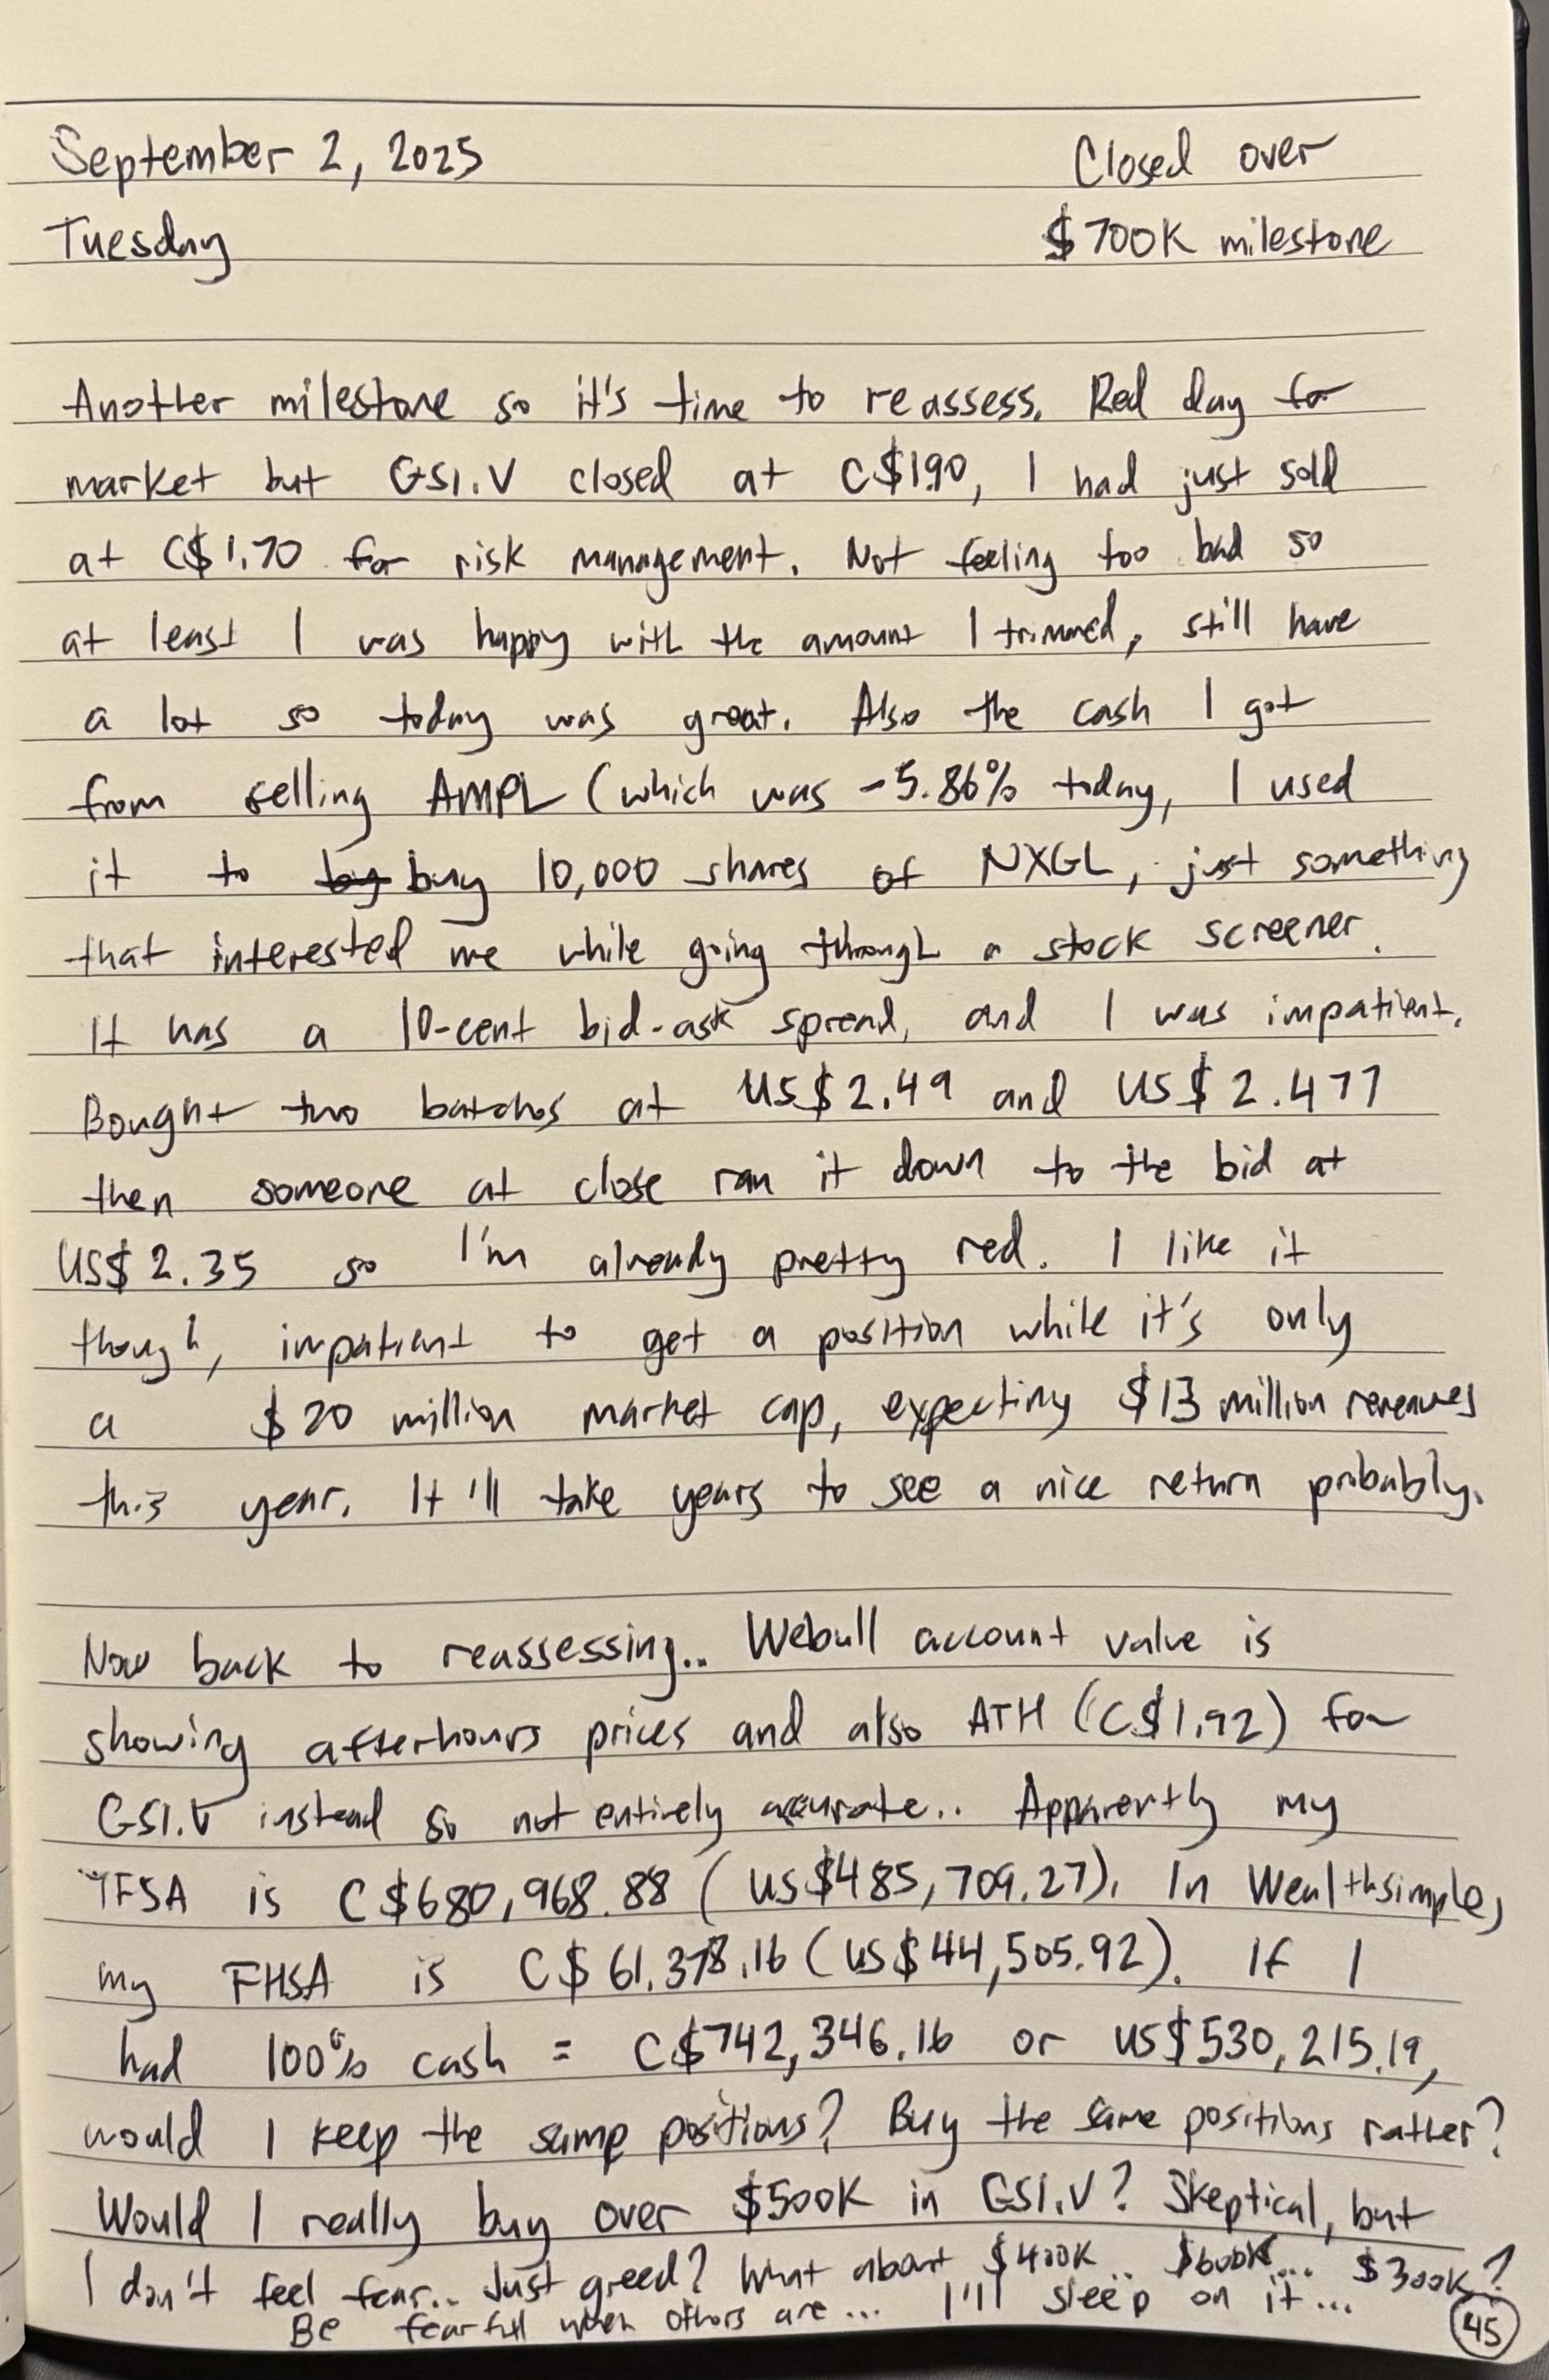 September 2, 2025
Closed over
Tuesday
$700K milestone
Another milestone so it's time to reassess. Red day for
market but GSI.V closed at C$1.90, I had just sold
at C$1.70 for risk management. Not feeling too bad so
at least I was happy with the amount I trimmed, still have
a lot so today was great. Also the cash I got
from selling AMPL (which was -5.86% today, I used
it to buy 10,000 shares of NXGL, just something
that interested me while going through a stock screener.
It has a 10-cent bid-ask spread, and I was impatient.
Bought two batches at US$2.49 and US$2.477
then someone at close ran it down to the bid at
US$2.35 so I'm already pretty red. I like it
though, impatient to get a position while it's only
a $20 million market cap, expecting $13 million revenues
this year. It'll take years to see a nice return probably.
Now back to reassessing.. Webull account value is
showing afterhours prices and also ATH (C$1.92) for
GSI.V instead so not entirely accurate.. Apparently my
TFSA is C$680,968.88 (US$485,709.27). In Wealthsimple,
my FHSA is C$61,378.16 (US$44,505.92). If I
had 100% cash = C$742,346.16 or US$530,215.19,
would I keep the same positions? Buy the same positions rather?
Would I really buy over $500K in GSI.V? Skeptical, but
I don't feel fear.. Just greed? What about $400K.. $600K... $300K?
Be fearful when others are... I'll sleep on it...
45